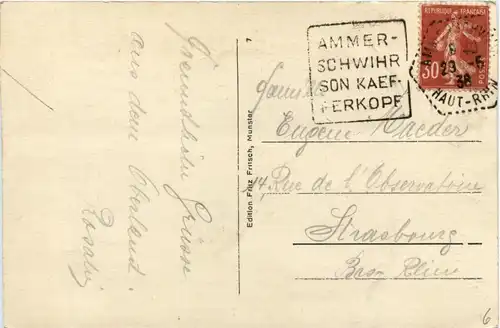 Freundliche Grüsse
aus dem Oberland.
7
Edition Fritz Fritsch, Munster
AMMER-
SCHWIHR
SON KAEF-
FERKOPF
RÉPUBLIQUE FRANÇAISE
30
POSTES
23 -5
38
HAUT-RHIN
Famille
Eugène Maeder
14, Rue de l'Observatoire
Strasbourg
Bas-Rhin
6